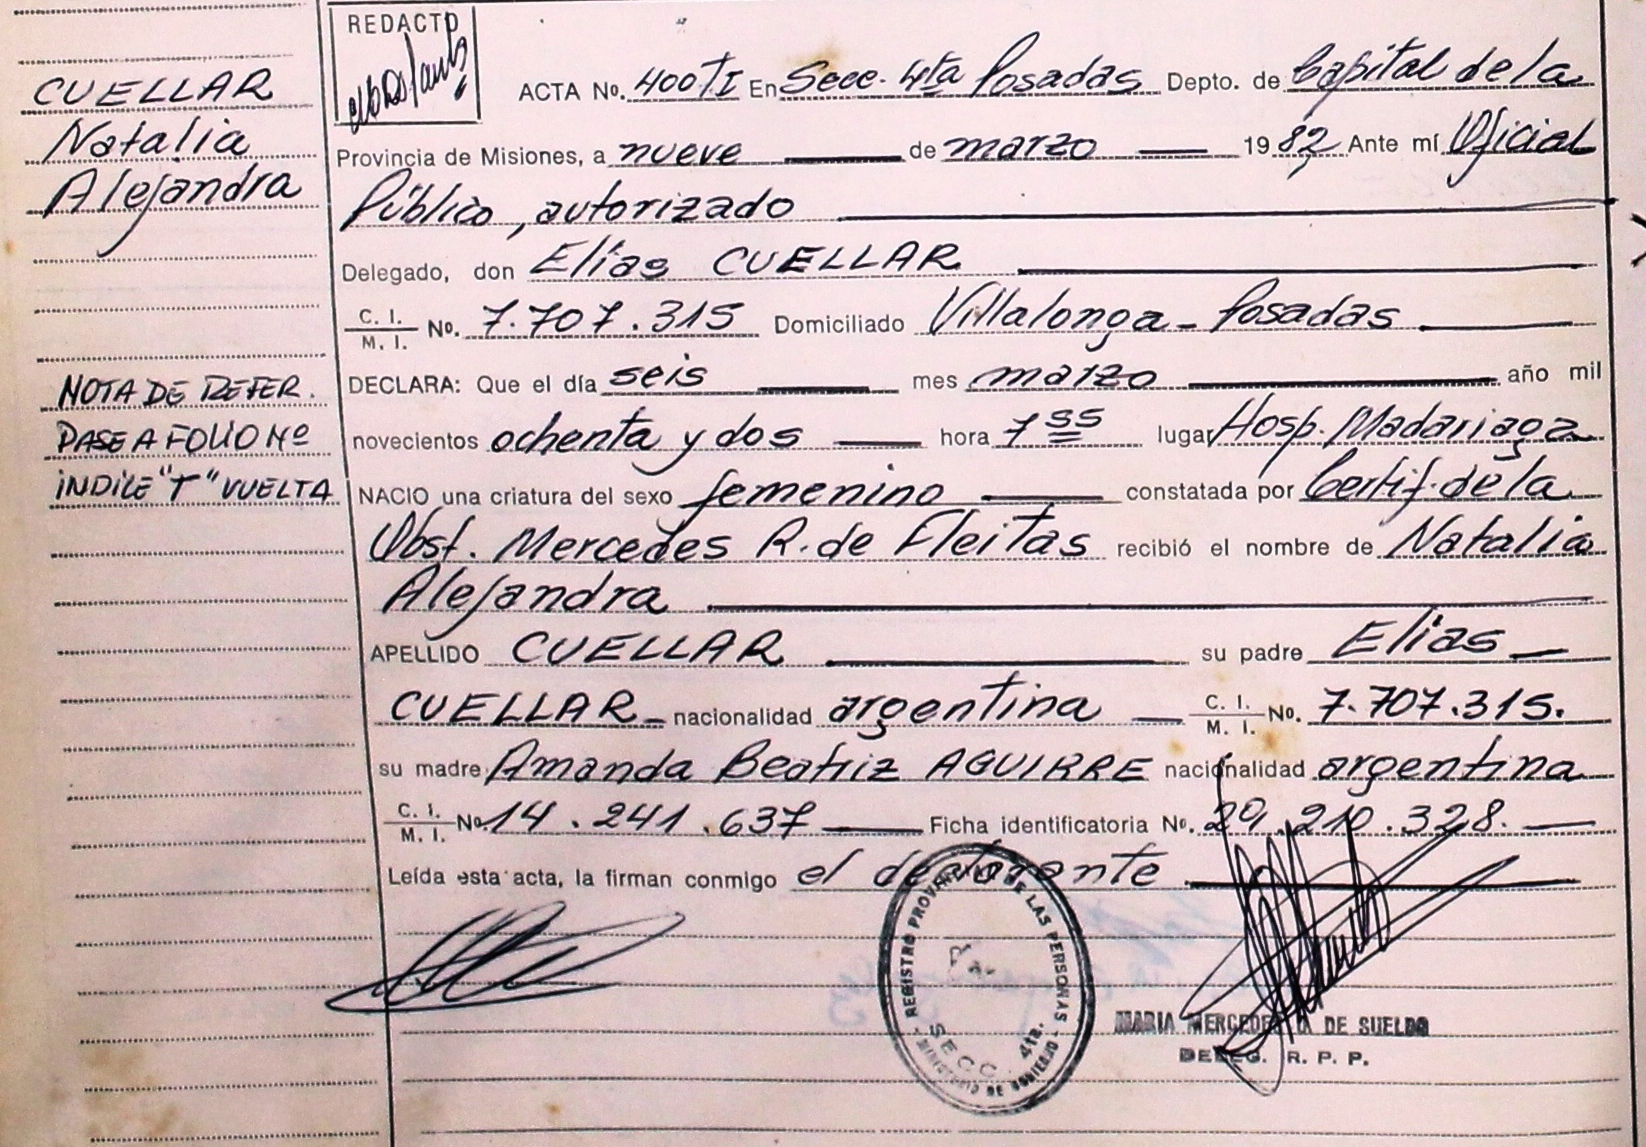 CUELLAR
Natalia
Alejandra
NOTA DE REFER.
PASE A FOLIO Nº
INDICE "T" VUELTA
REDACTO
ACTA No. 400 TI En Secc. 4ta Posadas Depto. de Capital de la
Provincia de Misiones, a nueve de marzo 1982, Ante mí Oficial
Público, autorizado
Delegado, don Elías CUELLAR
C. I.
M. I. No. 7.707.315 Domiciliado Villalonga - Posadas
DECLARA: Que el día seis mes marzo año mil
novecientos ochenta y dos hora 7 55 lugar Hosp. Madariaga
NACIO una criatura del sexo femenino constatada por Certif. de la
Obst. Mercedes R. de Fleitas recibió el nombre de Natalia
Alejandra
APELLIDO CUELLAR su padre Elías
CUELLAR nacionalidad argentina C. I.
M. I. No. 7.707.315.
su madre Amanda Beatriz AGUIRRE nacionalidad argentina
C. I.
M. I. No. 14.241.637 Ficha identificatoria No. 29.210.328.
Leída esta acta, la firman conmigo el declarante
REGISTRO PROVINCIAL DE LAS PERSONAS
SECC. 4ta.
MINISTERIO DE GOBIERNO
MARIA MERCEDES DE SUELDO
DELEG. R. P. P.